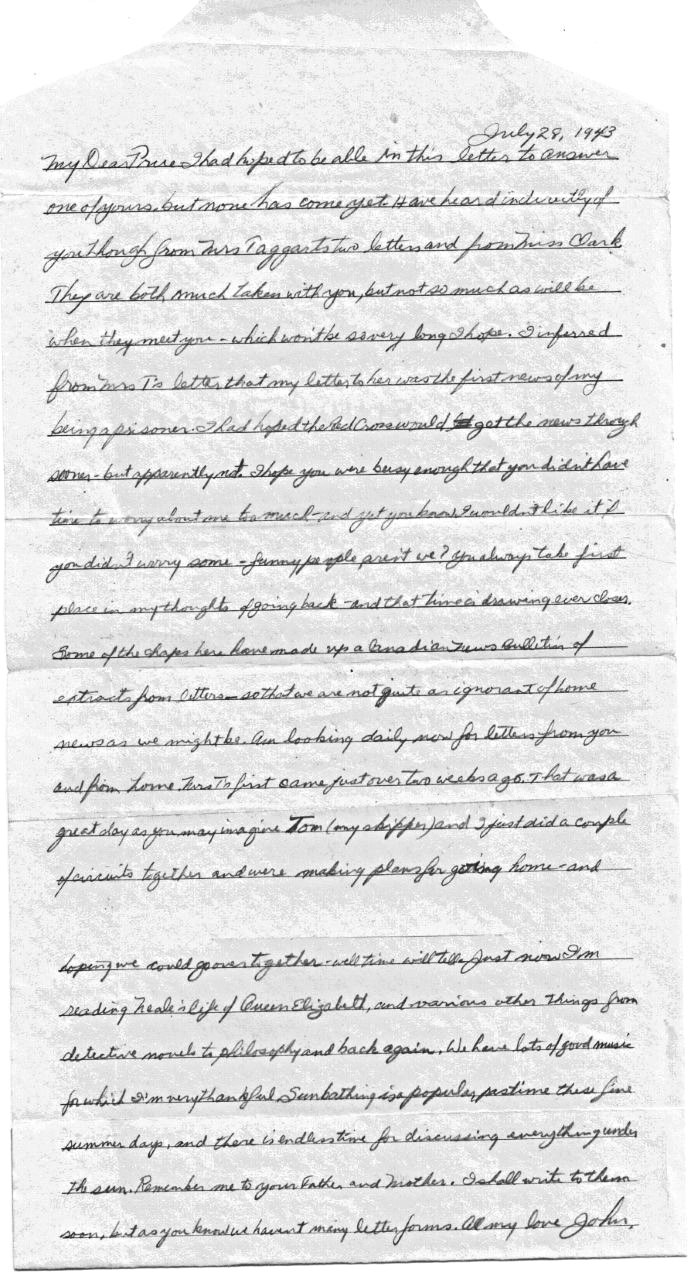 July 28, 1943
My Dear Prue I had hoped to be able in this letter to answer
one of yours, but none has come yet. Have heard indirectly of
you though from Mrs Taggarts two letters and from Miss Clark
They are both much taken with you, but not so much as will be
when they meet you - which won't be so very long I hope. I inferred
from Mrs T's letter that my letter to her was the first news of my
being a prisoner. I had hoped the Red Cross would get the news through
sooner - but apparently not. I hope you were busy enough that you didn't have
time to worry about me too much - and yet you know I wouldn't like it if
you didn't worry some - funny people aren't we? You always take first
place in my thoughts of going back - and that time is drawing ever closer.
Some of the chaps here have made up a Canadian News Bulletin of
extracts from letters - so that we are not quite as ignorant of home
news as we might be. Am looking daily now for letters from you
and from home. Mrs T's first came just over two weeks ago. That was a
great day as you may imagine Tom (my skipper) and I just did a couple
of circuits together and were making plans for going home - and
hoping we could go over together - well time will tell. Just now I'm
reading Neale's life of Queen Elizabeth, and various other things from
detective novels to philosophy and back again. We have lots of good music
for which I'm very thankful. Sunbathing is a popular pastime these fine
summer days, and there is endless time for discussing everything under
the sun. Remember me to your Father and Mother. I shall write to them
soon, but as you know we havent many letter forms. All my love John.